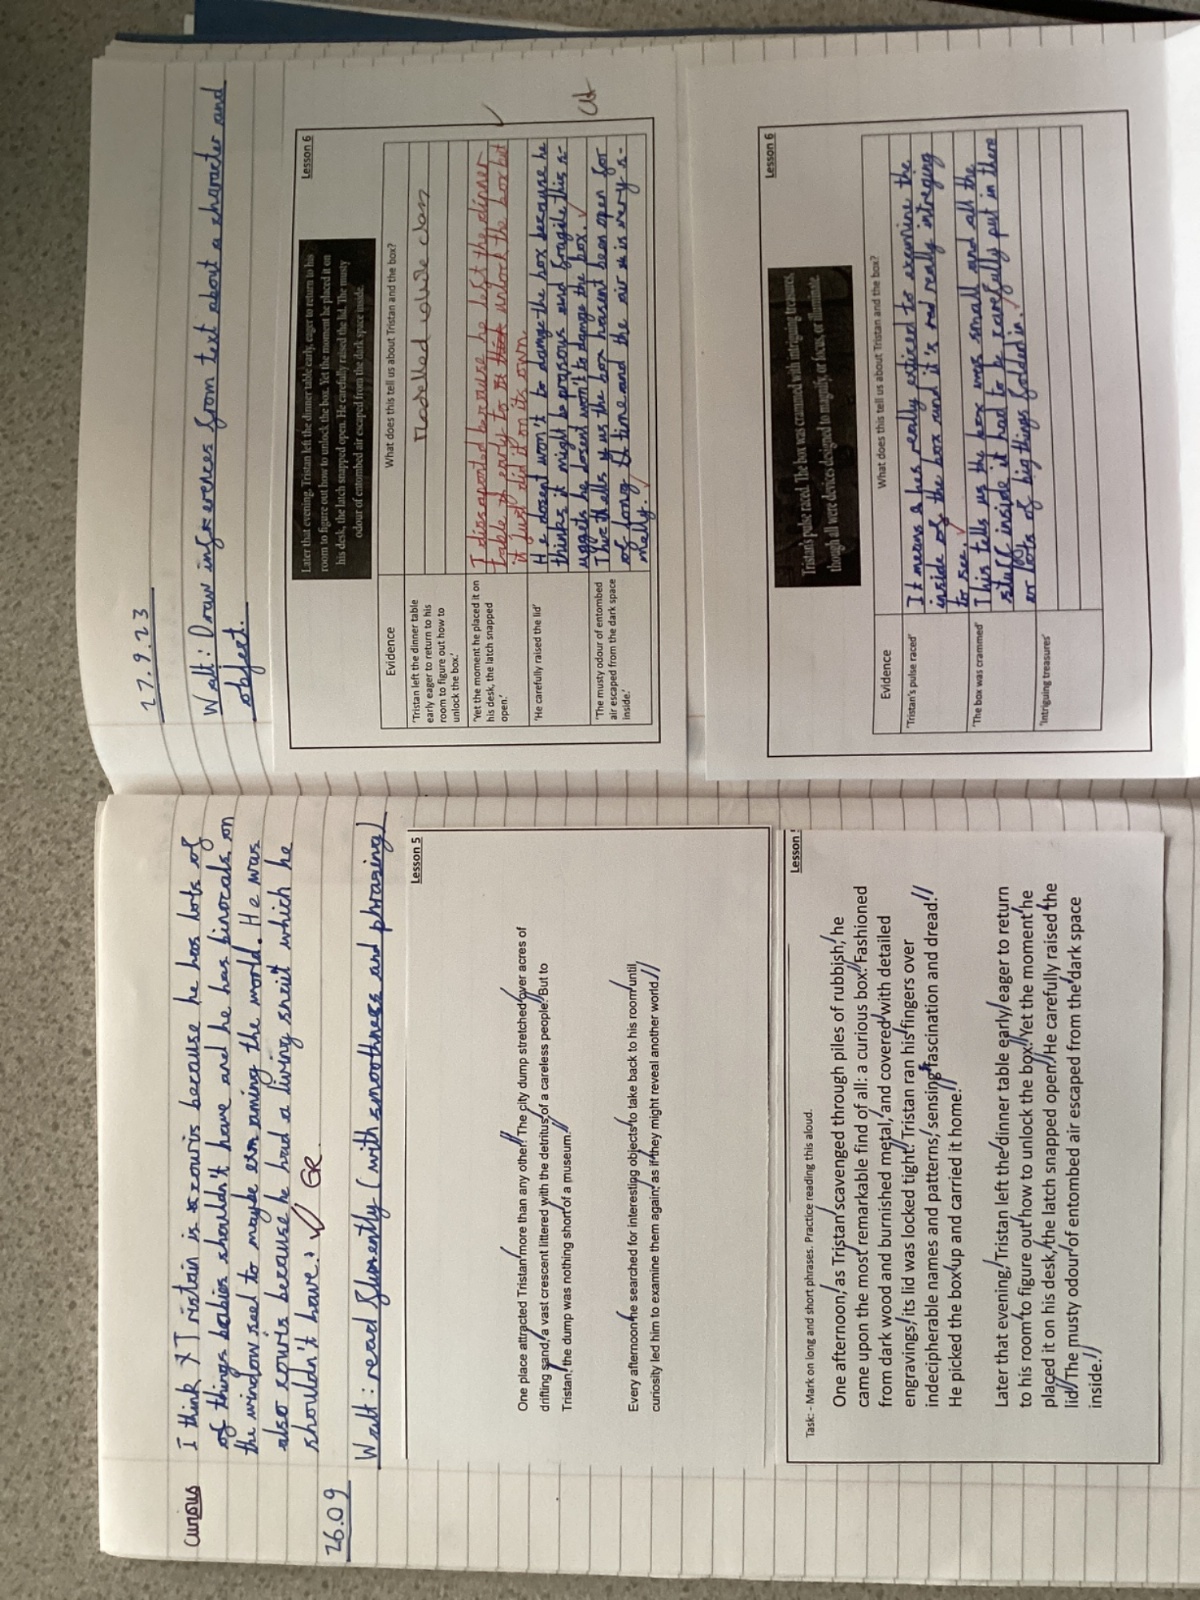 curious
I think Tristain is couris because he has lots of
of things babies shouldn't have and he has binocals on
the window seel to maybe exm aming the world. He was
also couris because he had a living snait which he
shouldn't have.
GR
26.09
Walt: read fluently (with smoothness and phrasing)
Lesson 5
One place attracted Tristan more than any other. The city dump stretched over acres of
drifting sand, a vast crescent littered with the detritus of a careless people. But to
Tristan, the dump was nothing short of a museum.
Every afternoon he searched for interesting objects to take back to his room until
curiosity led him to examine them again, as if they might reveal another world.
Lesson
Task: - Mark on long and short phrases. Practice reading this aloud.
One afternoon, as Tristan scavenged through piles of rubbish, he
came upon the most remarkable find of all: a curious box. Fashioned
from dark wood and burnished metal, and covered with detailed
engravings, its lid was locked tight. Tristan ran his fingers over
indecipherable names and patterns, sensing fascination and dread.
He picked the box up and carried it home.
Later that evening, Tristan left the dinner table early, eager to return
to his room to figure out how to unlock the box. Yet the moment he
placed it on his desk, the latch snapped open. He carefully raised the
lid. The musty odour of entombed air escaped from the dark space
inside.
27.9.23
Walt: Draw inferences from text about a character and
object.
Lesson 6
Later that evening, Tristan left the dinner table early, eager to return to his
room to figure out how to unlock the box. Yet the moment he placed it on
his desk, the latch snapped open. He carefully raised the lid. The musty
odour of entombed air escaped from the dark space inside.
Evidence
What does this tell us about Tristan and the box?
'Tristan left the dinner table
early eager to return to his
room to figure out how to
unlock the box.'
Modelled whole class
'Yet the moment he placed it on
his desk, the latch snapped
open.'
I dissaponted because he left the dinner
table to early to unlock the box but
it just did it on its own.
'He carefully raised the lid'
He dosent won't to damge the box because he
thinks it might be prasous and fragile this s-
uggets he dosent won't to damge the box.
'The musty odour of entombed
air escaped from the dark space
inside.'
us the box havent been open for
of long time and the air is very s-
melly.
Lesson 6
Tristan's pulse raced. The box was crammed with intriguing treasures,
though all were devices designed to magnify, or focus, or illuminate.
Evidence
What does this tell us about Tristan and the box?
'Tristan's pulse raced'
It means hes really exticed to examine the
inside of the box and it's really intreging
to see.
'The box was crammed'
This tells us the box was small and all the
stuff inside it had to be carefally put in there
or lots of big things folded in.
'Intriguing treasures'